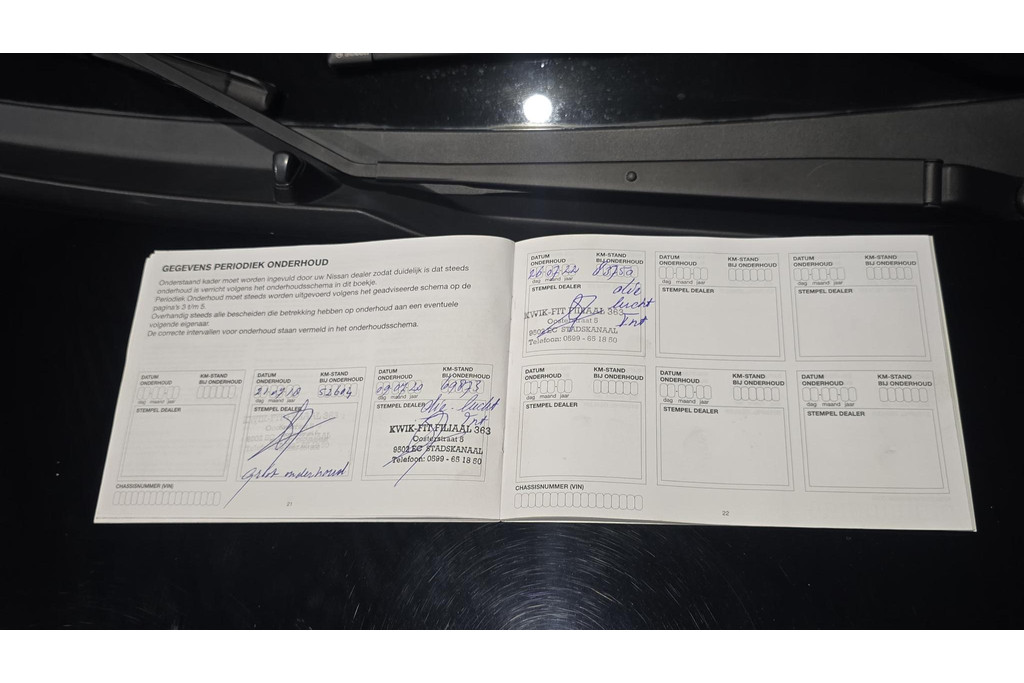 GEGEVENS PERIODIEK ONDERHOUD
Onderstaand kader moet worden ingevuld door uw Nissan dealer zodat duidelijk is dat steeds
onderhoud is verricht volgens het onderhoudsschema in dit boekje.
Periodiek Onderhoud moet steeds worden uitgevoerd volgens het geadviseerde schema op de
pagina's 3 t/m 5.
Overhandig steeds alle bescheiden die betrekking hebben op onderhoud aan een eventuele
volgende eigenaar.
De correcte intervallen voor onderhoud staan vermeld in het onderhoudsschema.
DATUM ONDERHOUD
KM-STAND BIJ ONDERHOUD
dag maand jaar
STEMPEL DEALER
DATUM ONDERHOUD
KM-STAND BIJ ONDERHOUD
52604
dag maand jaar
STEMPEL DEALER
groot onderhoud
DATUM ONDERHOUD
KM-STAND BIJ ONDERHOUD
09 07 20 69873
dag maand jaar
STEMPEL DEALER
olie - lucht
KWIK-FIT FILIAAL 363
Oosterstraat 5
9502 EG STADSKANAAL
Telefoon: 0599 - 65 18 50
CHASSISNUMMER (VIN)
21
DATUM ONDERHOUD
KM-STAND BIJ ONDERHOUD
26 07 22 83750
dag maand jaar
STEMPEL DEALER
olie
lucht
KWIK-FIT FILIAAL 363
Oosterstraat 5
9502 EG STADSKANAAL
Telefoon: 0599 - 65 18 50
DATUM ONDERHOUD
KM-STAND BIJ ONDERHOUD
dag maand jaar
STEMPEL DEALER
DATUM ONDERHOUD
KM-STAND BIJ ONDERHOUD
dag maand jaar
STEMPEL DEALER
DATUM ONDERHOUD
KM-STAND BIJ ONDERHOUD
dag maand jaar
STEMPEL DEALER
DATUM ONDERHOUD
KM-STAND BIJ ONDERHOUD
dag maand jaar
STEMPEL DEALER
DATUM ONDERHOUD
KM-STAND BIJ ONDERHOUD
dag maand jaar
STEMPEL DEALER
CHASSISNUMMER (VIN)
22